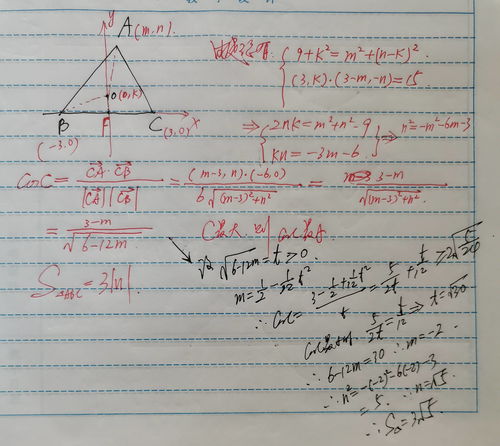 y
A(m,n)
O(0,k)
B
F
C(3,0) x
(-3,0)
{ 9+k²=m²+(n-k)²
(3,k)·(3-m,-n)=15
⇒ { 2nk=m²+n²-9
kn=-3m-6 ⇒ n²=-m²-6m-3
CosC = CA·CB / |CA||CB| = (m-3,n)·(-6,0) / 6√(m-3)²+n² = 3-m / √(m-3)²+n²
= 3-m / √6-12m
C最大 时 cosC最小
S△ABC=3|n|
√6-12m=t>0
m=1/2-1/12t²
∴ CosC= 3-1/2+1/12t² / t = 5/2t+t/12 ≥2√5/24
CosC最小时 5/2t=t/12 ⇒ t=√30
∴ 6-12m=30 ∴ m=-2
∴ n²=-(-2)²-6(-2)-3
=5 ∴ n=√5
∴ S△=3√5